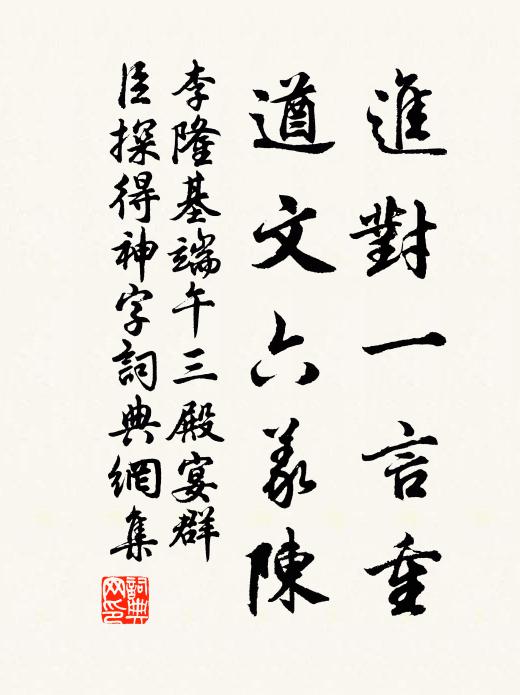 進對一言重
遒文六義陳
李隆基端午三殿宴群
臣探得神字詞典網集
詞典
网印